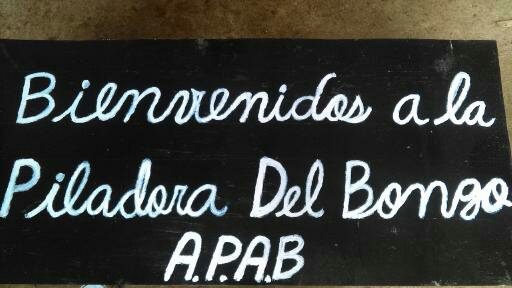 Bienvenidos a la
Piladora Del Bongo
A.P.A.B